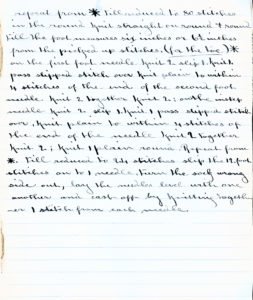 repeat from * till reduced to 80 stitches
in the round knit straight on round & round
till the foot measures six inches or 6½ inches
from the picked up stitches. (for the toe) *
on the first foot needle Knit 2 slip 1, Knit 1,
pass slipped stitch over knit plain to within
4 stitches of the end of the second foot
needle Knit 2 together Knit 2; on the instep
needle Knit 2 slip 1, Knit 1 pass slipped stitch
over, Knit plain to within 4 stitches of
the end of the needle Knit 2 together
Knit 2; Knit 1 plain round. Repeat from
*. Till reduced to 24 stitches slip the 12 foot
stitches on to 1 needle. Turn the sock wrong
side out, lay the needles level with one
another and cast off by Knitting togeth-
er 1 stitch from each needle.